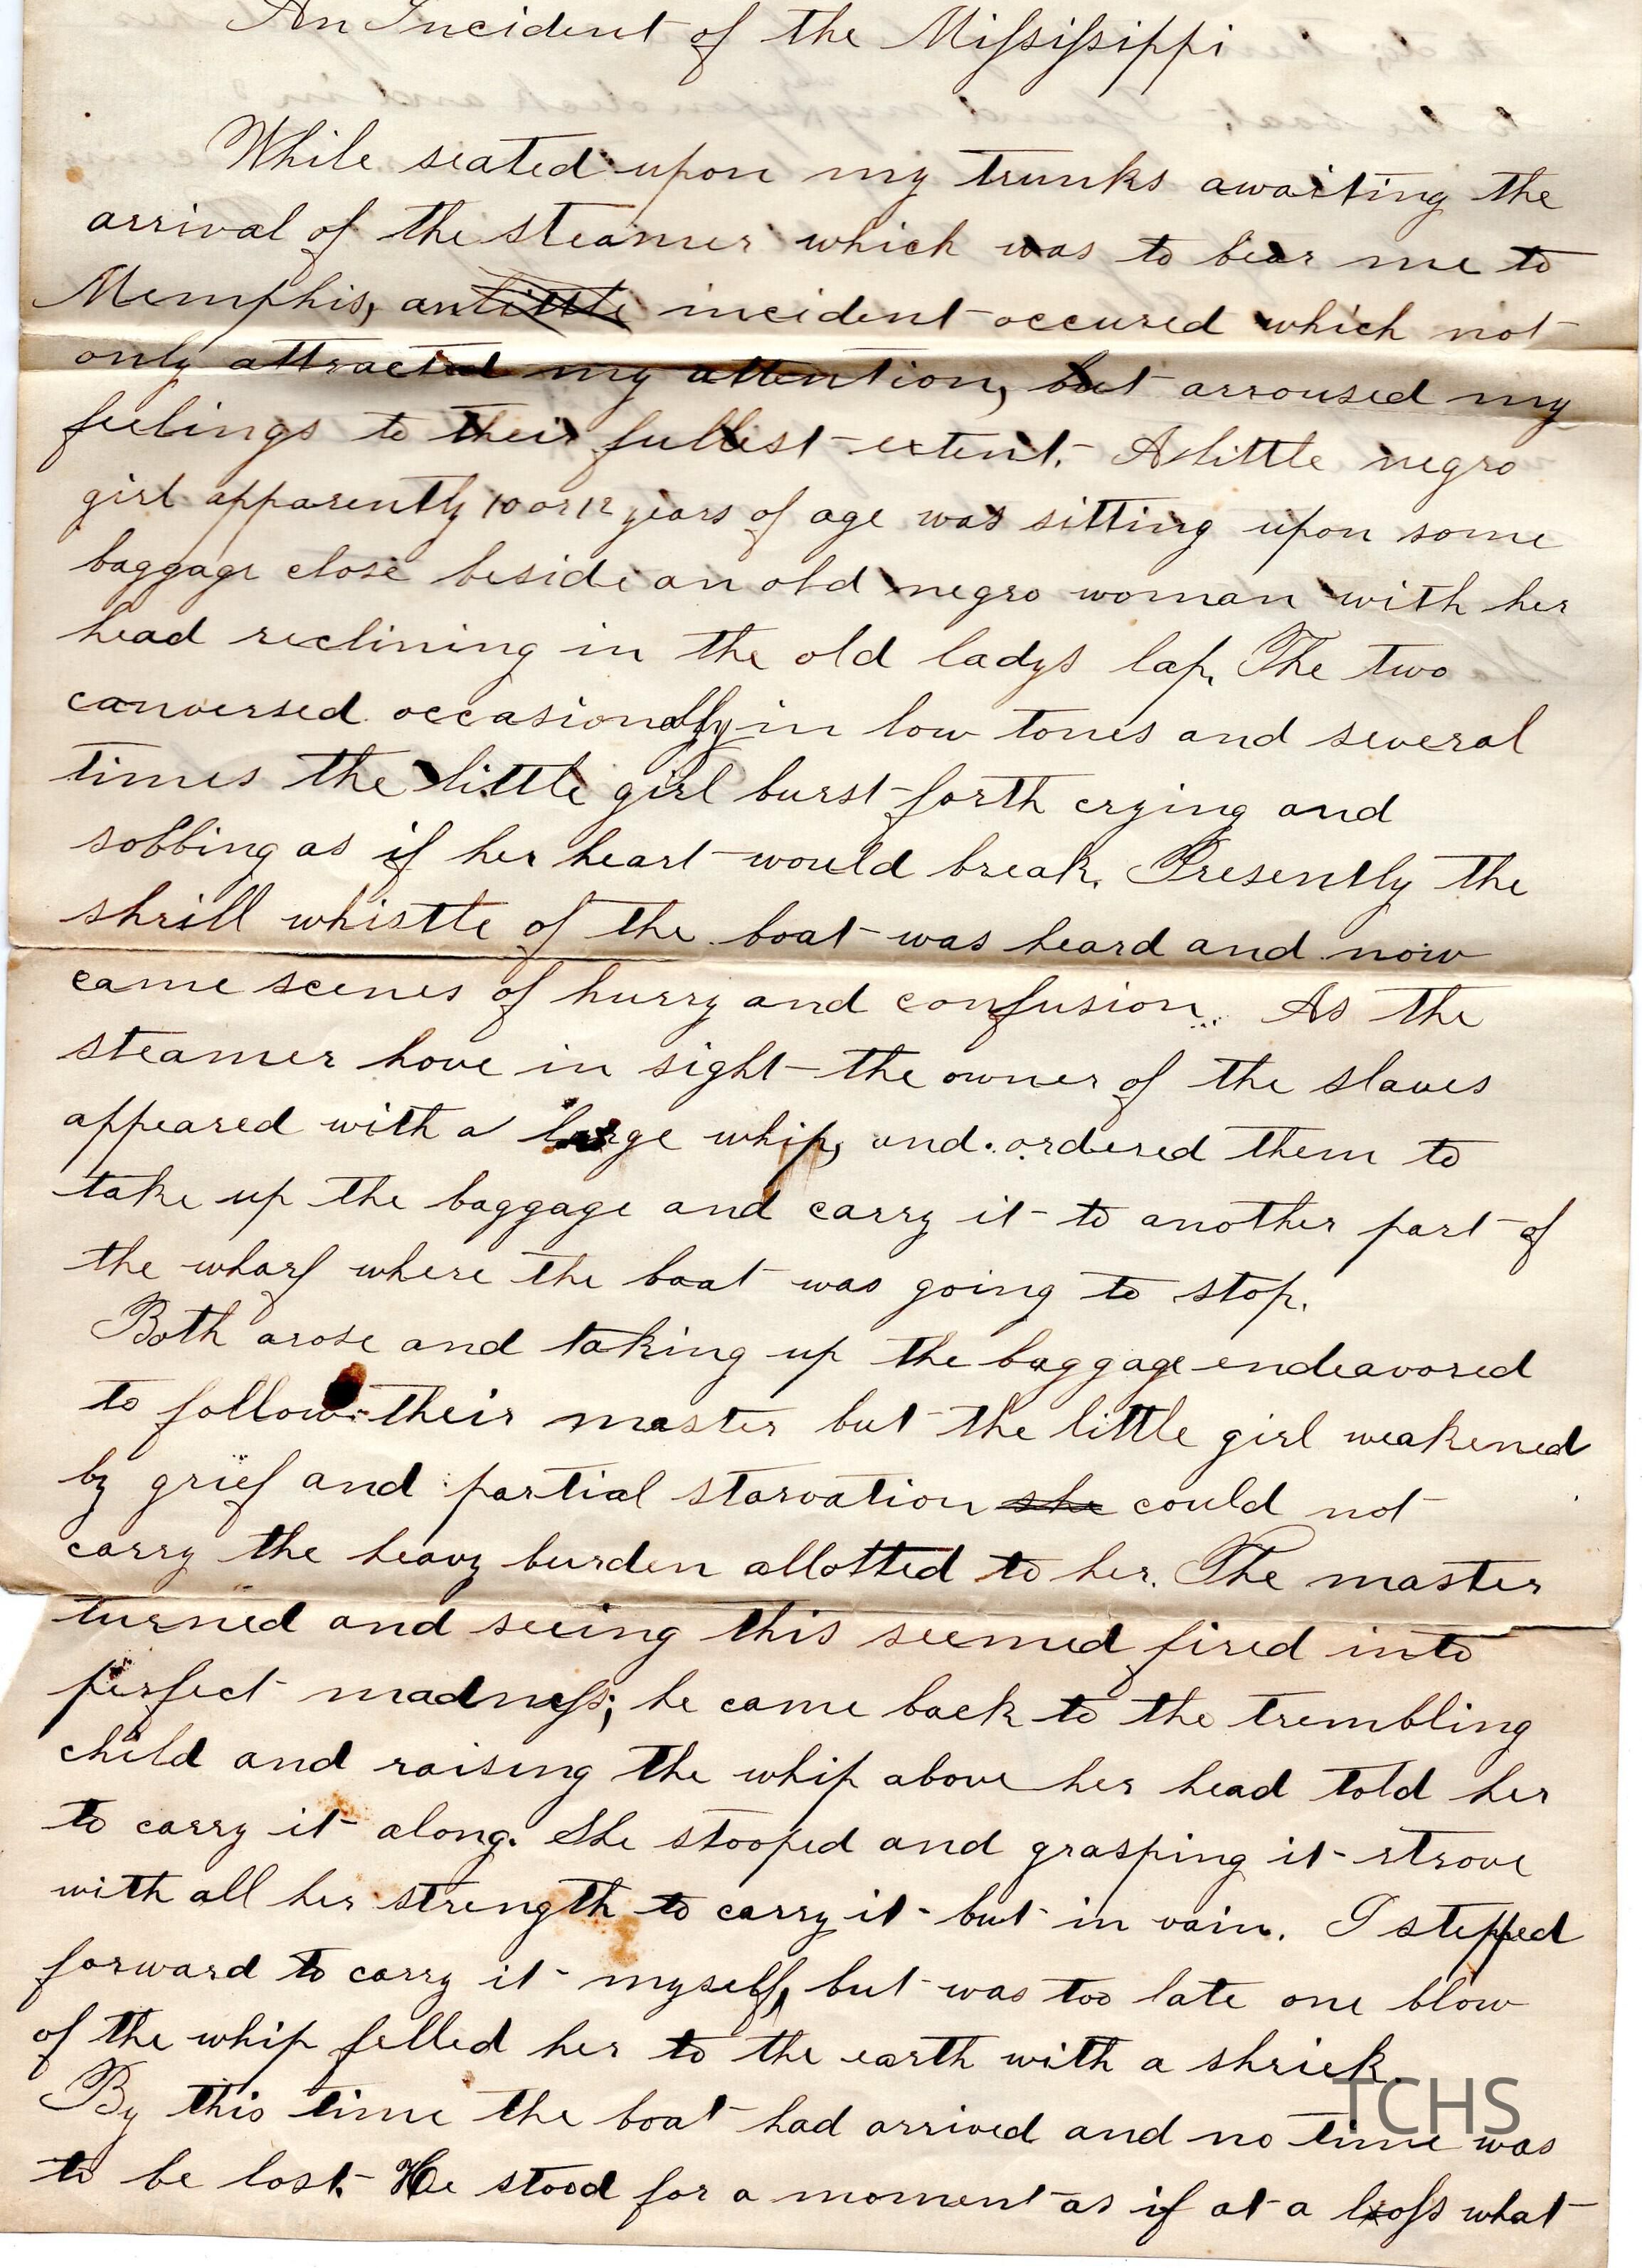 An Incident of the Miſsiſsippi
While seated upon my trunks awaiting the
arrival of the steamer which was to bear me to
Memphis, an little incident occured which not
only attracted my attention, but arroused my
feelings to their fullest extent. A little negro
girl apparently 10 or 12 years of age was sitting upon some
baggage close beside an old negro woman with her
head reclining in the old ladys lap. The two
conversed occasionally in low tones and several
times the little girl burst forth crying and
sobbing as if her heart would break. Presently the
shrill whistle of the boat was heard and now
came scenes of hurry and confusion. As the
steamer hove in sight the owner of the slaves
appeared with a large whip, and ordered them to
take up the baggage and carry it to another part of
the wharf where the boat was going to stop.
Both arose and taking up the baggage endeavored
to follow their master but the little girl weakened
by grief and partial starvation she could not
carry the heavy burden allotted to her. The master
turned and seeing this seemed fired into
perfect madneſs; he came back to the trembling
child and raising the whip above her head told her
to carry it along. She stooped and grasping it strove
with all her strength to carry it but in vain. I stepped
forward to carry it myself, but was too late one blow
of the whip felled her to the earth with a shriek.
By this time the boat had arrived and no time was
to be lost. He stood for a moment as if at a loſs what
TCHS